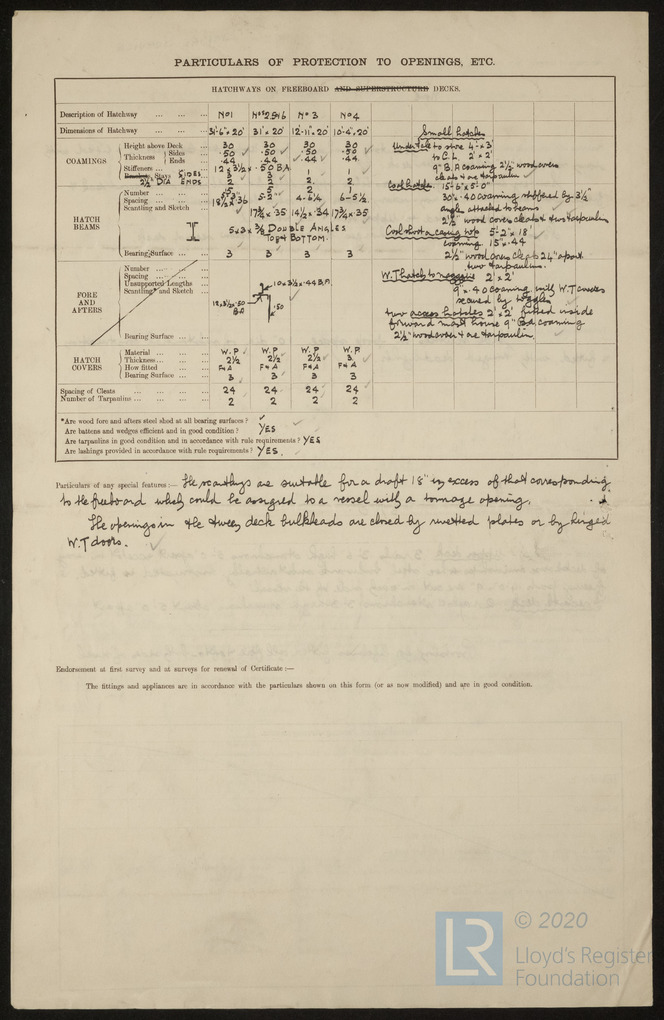 PARTICULARS OF PROTECTION TO OPENINGS, ETC.
HATCHWAYS ON FREEBOARD AND SUPERSTRUCTURE DECKS.
Description of Hatchway ... ... ... No 1 Nos 2 5 & 6 No 3 No 4
Dimensions of Hatchway ... ... 31'-6" x 20' 31' x 20' 12'-11" x 20' 10'-4" x 20'
COAMINGS
Height above Deck ... 30 30 30 30
Thickness Sides ... .50 .50 .50 .50
Ends ... .44 .44 .44 .44
Stiffeners ... 12 x 3½ x .50 B.A
SIDES 3 3 1 1
ENDS 2 2 2 2
HATCH BEAMS
Number ... 5 5 2 1
Spacing ... 5-2" 4-6¼ 6-5½
Scantling and Sketch 18½ x .36 17¾ x .35 14½ x .34 17¾ x .35
5 x 3 x 3/8 DOUBLE ANGLES
TOP & BOTTOM.
Bearing Surface ... 3 3 3 3
FORE AND AFTERS
Number ...
Spacing ...
Unsupported Lengths
Scantling and Sketch
10 x 3½ x .44 B.A.
12 x 3½ x .50
B A
.50
Bearing Surface ...
HATCH COVERS
Material ... W.P W.P W.P W.P
Thickness ... 2½ 2½ 2½ 3
How fitted ... F & A F & A F & A F & A
Bearing Surface ... 3 3 3 3
Spacing of Cleats ... 24 24 24 24
Number of Tarpaulins ... 2 2 2 2
Small hatches
to store 4' x 3'
to C.L. 2' x 2'
9" B.A coaming 2½" wood covers
cleats & one tarpaulin
Coal hatch. 15'-6" x 5'-0"
30" x .40 coaming stiffened by 3½"
angle attached to beams
2½" wood covers cleats & two tarpaulins
Coal shoot a casing top 5'-2" x 18"
coaming 15" x .44
2½" wood covers cleats 24" apart
two tarpaulins.
W.T hatch to 2' x 2'
9" x .40 coaming with W.T covers
secured by toggles
two access hatches 2' x 2' fitted inside
forward mast house 9" coaming
2½" wood covers & one tarpaulin.
*Are wood fore and afters steel shod at all bearing surfaces ?
Are battens and wedges efficient and in good condition ? YES
Are tarpaulins in good condition and in accordance with rule requirements ? YES
Are lashings provided in accordance with rule requirements ? YES.
Particulars of any special features :— The scantlings are suitable for a draft 18" in excess of that corresponding
to the freeboard which could be assigned to a vessel with a tonnage opening.
The openings in the tween deck bulkheads are closed by rivetted plates or by hinged
W.T doors.
Endorsement at first survey and at surveys for renewal of Certificate :—
The fittings and appliances are in accordance with the particulars shown on this form (or as now modified) and are in good condition.
LR
© 2020
Lloyd's Register
Foundation